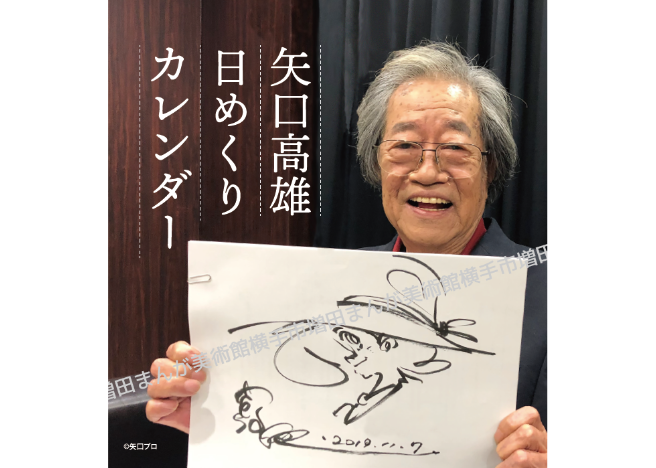 矢口高雄
日めくり
カレンダー
増田まんが美術館横手市増田まんが美術館横手市増田
2019.11.7
©矢口プロ